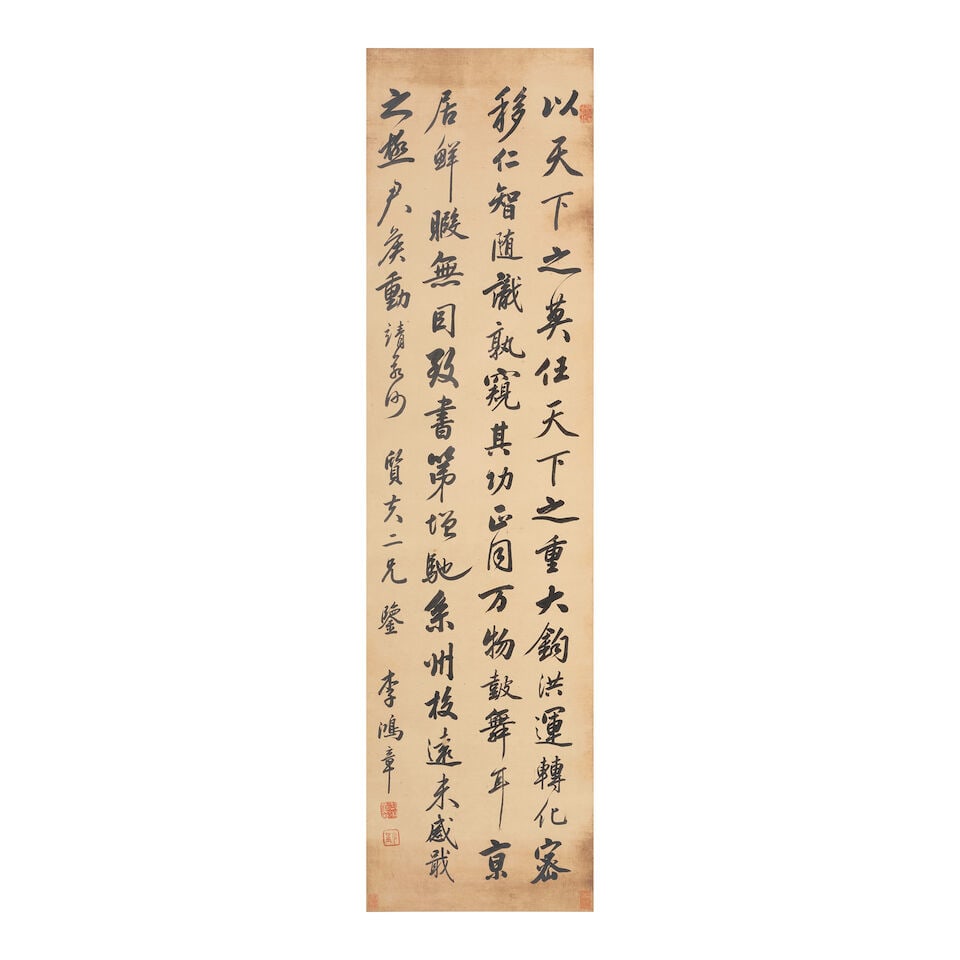 以天下之英任天下之重大鈞洪運轉化密
移仁智随識孰窺其功正同万物鼓舞耳京
居鮮暇無因致書第增馳系州校遠来感戢
之極尹侯動靖
質夫二兄 鑒 李鴻章